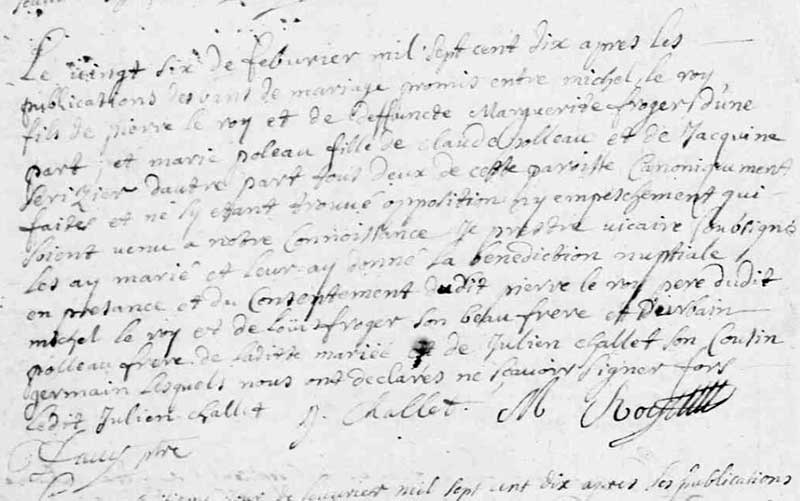 Le vingt six de feburier mil sept cent dix apres les
publications des bans de mariage promis entre michel le roy
fils de pierre le roy et de deffuncte Marguerite froger d'une
part, et marie poleau fille de claude polleau et de Jacquine
serizier dautre part tous deux de cette paroisse Canoniquement
faites et ne sy etant trouvé opposition ny empeschement qui
soient venu a notre Connoissance Je prestre vicaire soubsigné
les ay marié et leur ay donné la benediction nuptiale
en presance et du Consentement dudit pierre le roy pere dudit
michel le roy et de loüis froger son beaufrere et d'urbain
polleau frere de laditte mariée et de Julien challet son Cousin
germain lesquels nous ont declarés ne scavoir signer fors
ledit Julien challet J. Challet. M
ptre
feburier mil sept cent dix apres les publications